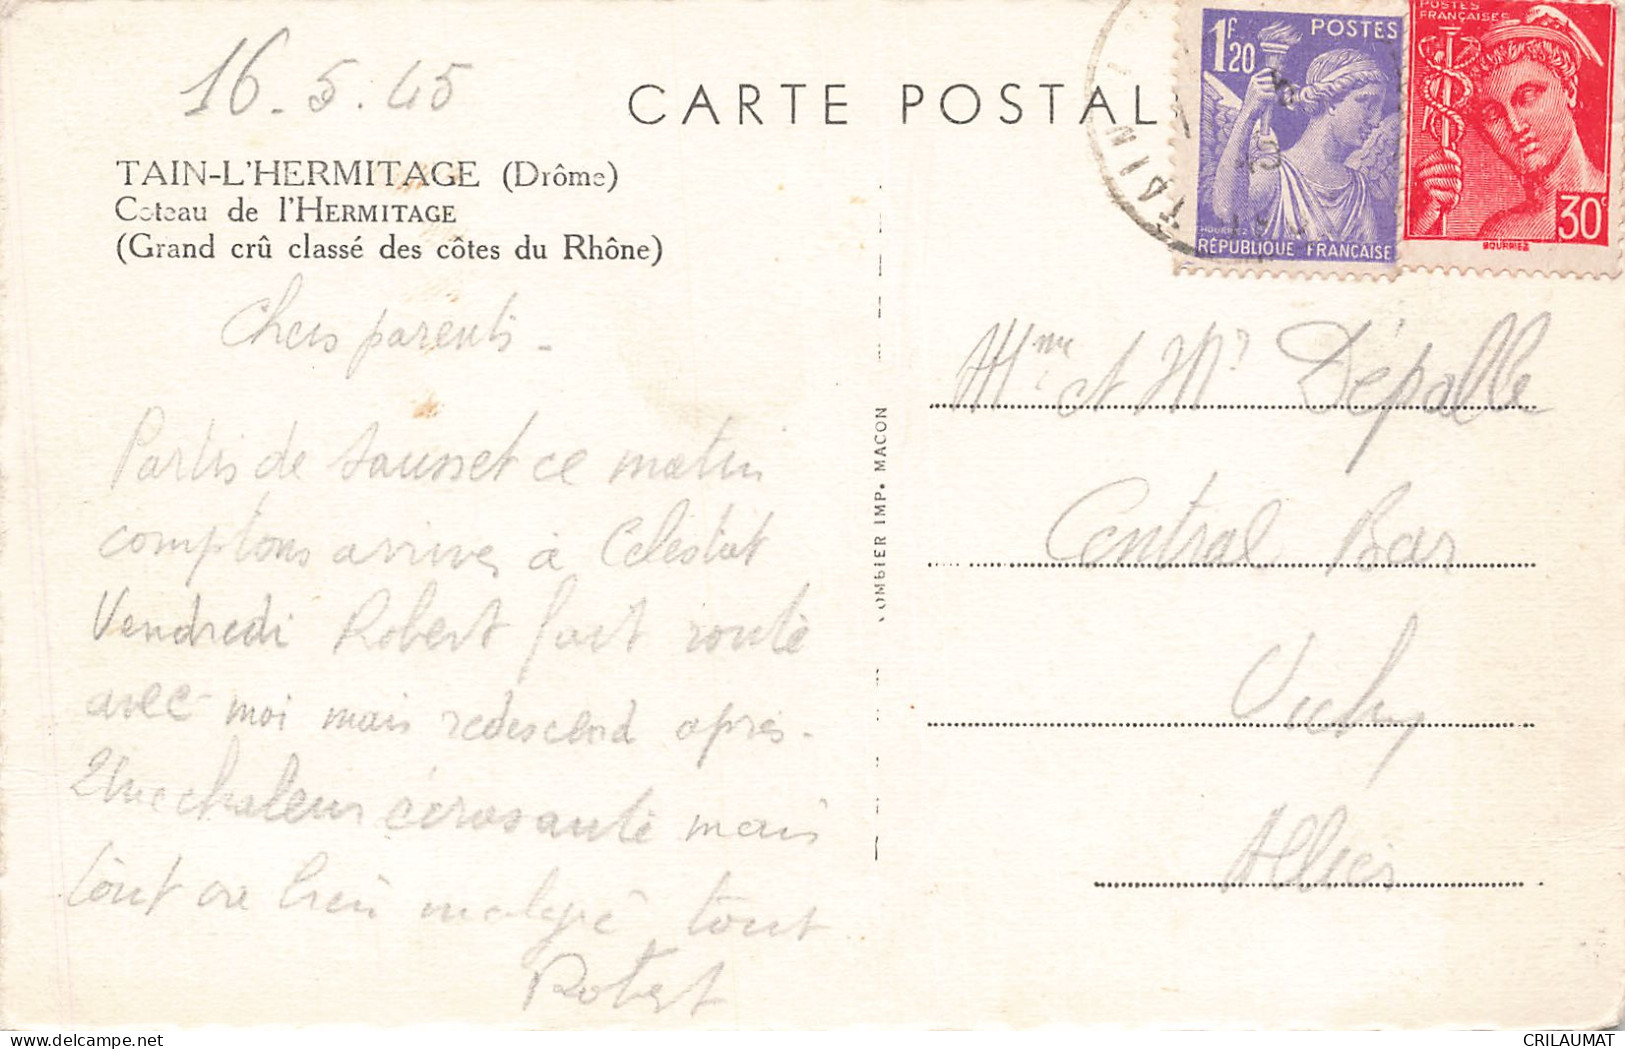 16.5.45
CARTE POSTAL
TAIN-L'HERMITAGE (Drôme)
Coteau de l'HERMITAGE
(Grand crû classé des côtes du Rhône)
Chers parents -
Partis de Sausset ce matin
comptons arriver à Célestat
Vendredi Robert fait route
avec moi mais redescend après -
Une chaleur écrasante mais
tout va bien malgré tout
Robert
OMBIER IMP. MACON
1F20
POSTES
HOURRIEZ
RÉPUBLIQUE FRANÇAISE
TAIN
POSTES
FRANÇAISES
30c
HOURRIEZ
Mme et Mr Dépalle
Central Bar
Vichy
Allier
CRILAUMAT